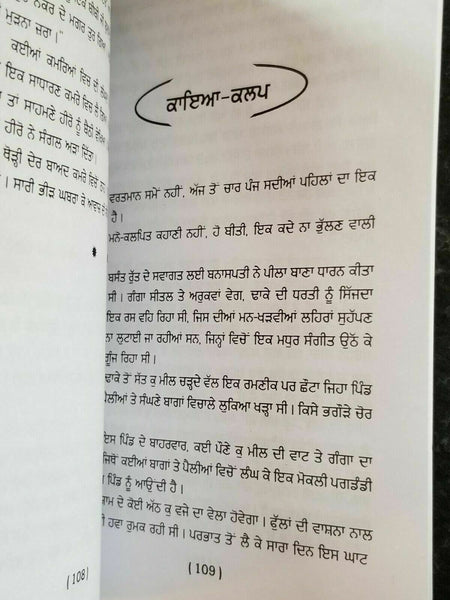 ਨਕਰ ਦੇ ਮਗਰ ਤੁਰ
ਮੁੜਨਾ ਜ਼ਰਾ।"
ਕਈਆਂ ਕਮਰਿਆਂ ਵਿਚ ਦੀ
ਇਕ ਸਾਧਾਰਣ ਕਮਰੇ ਵਿਚ ਲੈ
ਤਾਂ ਸਾਹਮਣੇ ਹੀਰੋ ਨੂੰ ਬੈਠੀ
ਹੀਰੋ ਨੇ ਸੰਗਲ ਅੜਾ ਦਿੱਤਾ।
ਥੋੜ੍ਹੀ ਦੇਰ ਬਾਅਦ ਕਮਰੇ ਵਿਚੋਂ
। ਸਾਰੀ ਭੀੜ ਘਬਰਾ ਕੇ
*
(108)
ਕਾਇਆ-ਕਲਪ
ਵਰਤਮਾਨ ਸਮੇਂ ਨਹੀਂ, ਅੱਜ ਤੋਂ ਚਾਰ ਪੰਜ ਸਦੀਆਂ ਪਹਿਲਾਂ ਦਾ ਇਕ
ਹੈ।
ਮਨੋ-ਕਲਪਿਤ ਕਹਾਣੀ ਨਹੀਂ, ਹੋ ਬੀਤੀ, ਇਕ ਕਦੇ ਨਾ ਭੁੱਲਣ ਵਾਲੀ
ਬਸੰਤ ਰੁੱਤ ਦੇ ਸਵਾਗਤ ਲਈ ਬਨਾਸਪਤੀ ਨੇ ਪੀਲਾ ਬਾਣਾ ਧਾਰਨ ਕੀਤਾ
ਸੀ। ਗੰਗਾ ਸੀਤਲ ਤੇ ਅਰੁਕਵਾਂ ਵੇਗ, ਢਾਕੇ ਦੀ ਧਰਤੀ ਨੂੰ ਸਿੰਜਦਾ
ਇਕ ਰਸ ਵਹਿ ਰਿਹਾ ਸੀ, ਜਿਸ ਦੀਆਂ ਮਨ-ਖੜਵੀਆਂ ਲਹਿਰਾਂ ਸੁਹੱਪਣ
ਨਾ ਲੁਟਾਈ ਜਾ ਰਹੀਆਂ ਸਨ, ਜਿਨ੍ਹਾਂ ਵਿਚੋਂ ਇਕ ਮਧੁਰ ਸੰਗੀਤ ਉਠ ਕੇ
ਗੂੰਜ ਰਿਹਾ ਸੀ।
ਢਾਕੇ ਤੋਂ ਸੱਤ ਕੁ ਮੀਲ ਚੜ੍ਹਦੇ ਵੱਲ ਇਕ ਰਮਣੀਕ ਪਰ ਛੋਟਾ ਜਿਹਾ ਪਿੰਡ
ਪੈਲੀਆਂ ਤੇ ਸੰਘਣੇ ਬਾਗਾਂ ਵਿਚਾਲੇ ਲੁਕਿਆ ਖੜ੍ਹਾ ਸੀ। ਕਿਸੇ ਭਗੌੜੇ ਚੋਰ
ਇਸ ਪਿੰਡ ਦੇ ਬਾਹਰਵਾਰ, ਕਈ ਪੌਣੇ ਕੁ ਮੀਲ ਦੀ ਵਾਟ ਤੇ ਗੰਗਾ ਦਾ
ਜਿਥੋਂ ਕਈਆਂ ਬਾਗਾਂ ਤੇ ਪੈਲੀਆਂ ਵਿਚੋਂ ਲੰਘ ਕੇ ਇਕ ਮੋਕਲੀ ਪਗਡੰਡੀ
ਪਿੰਡ ਨੂੰ ਆਉਂਦੀ ਹੈ।
ਸ਼ਾਮ ਦੇ ਕੋਈ ਅੱਠ ਕੁ ਵਜੇ ਦਾ ਵੇਲਾ ਹੋਵੇਗਾ। ਫੁੱਲਾਂ ਦੀ ਵਾਸ਼ਨਾ ਨਾਲ
ਹਵਾ ਰੁਮਕ ਰਹੀ ਸੀ। ਪਰਭਾਤ ਤੋਂ ਲੈ ਕੇ ਸਾਰਾ ਦਿਨ ਇਸ ਘਾਟ
(109)